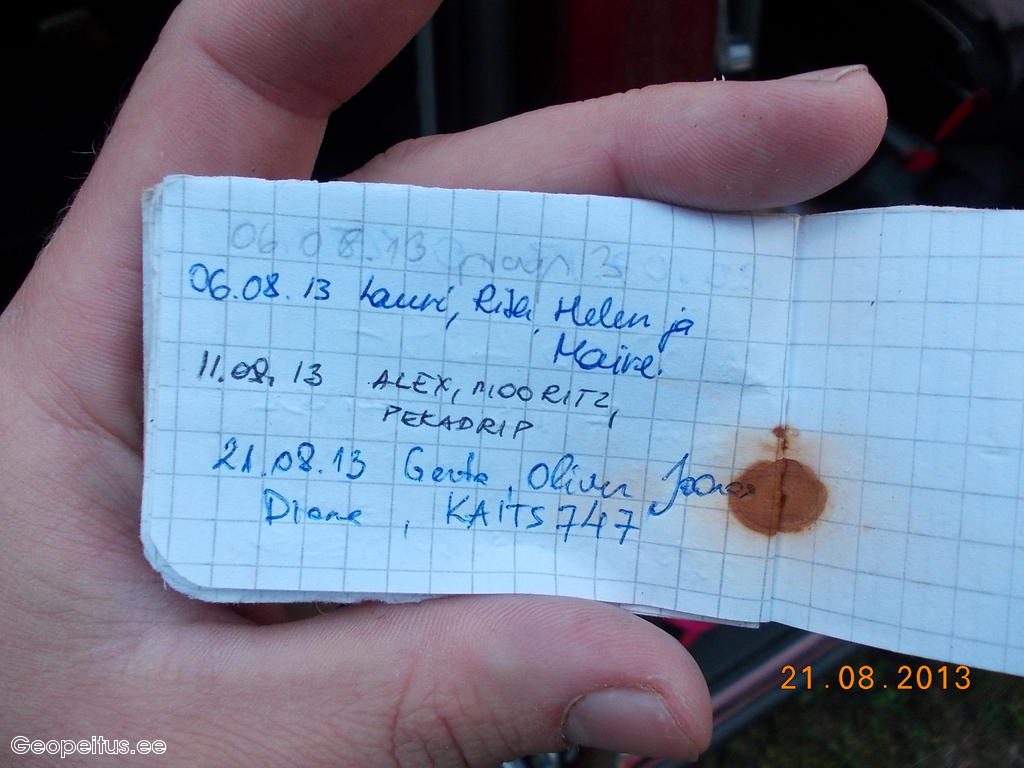 06.08.13
06.08.13 Lauri, Rita, Helen ja
Maire.
11.08.13 ALEX, MOORITZ,
PEKADRIP
21.08.13 Gerta, Oliver Joonas
Diana, KAITS747
21.08.2013
Geopeitus.ee